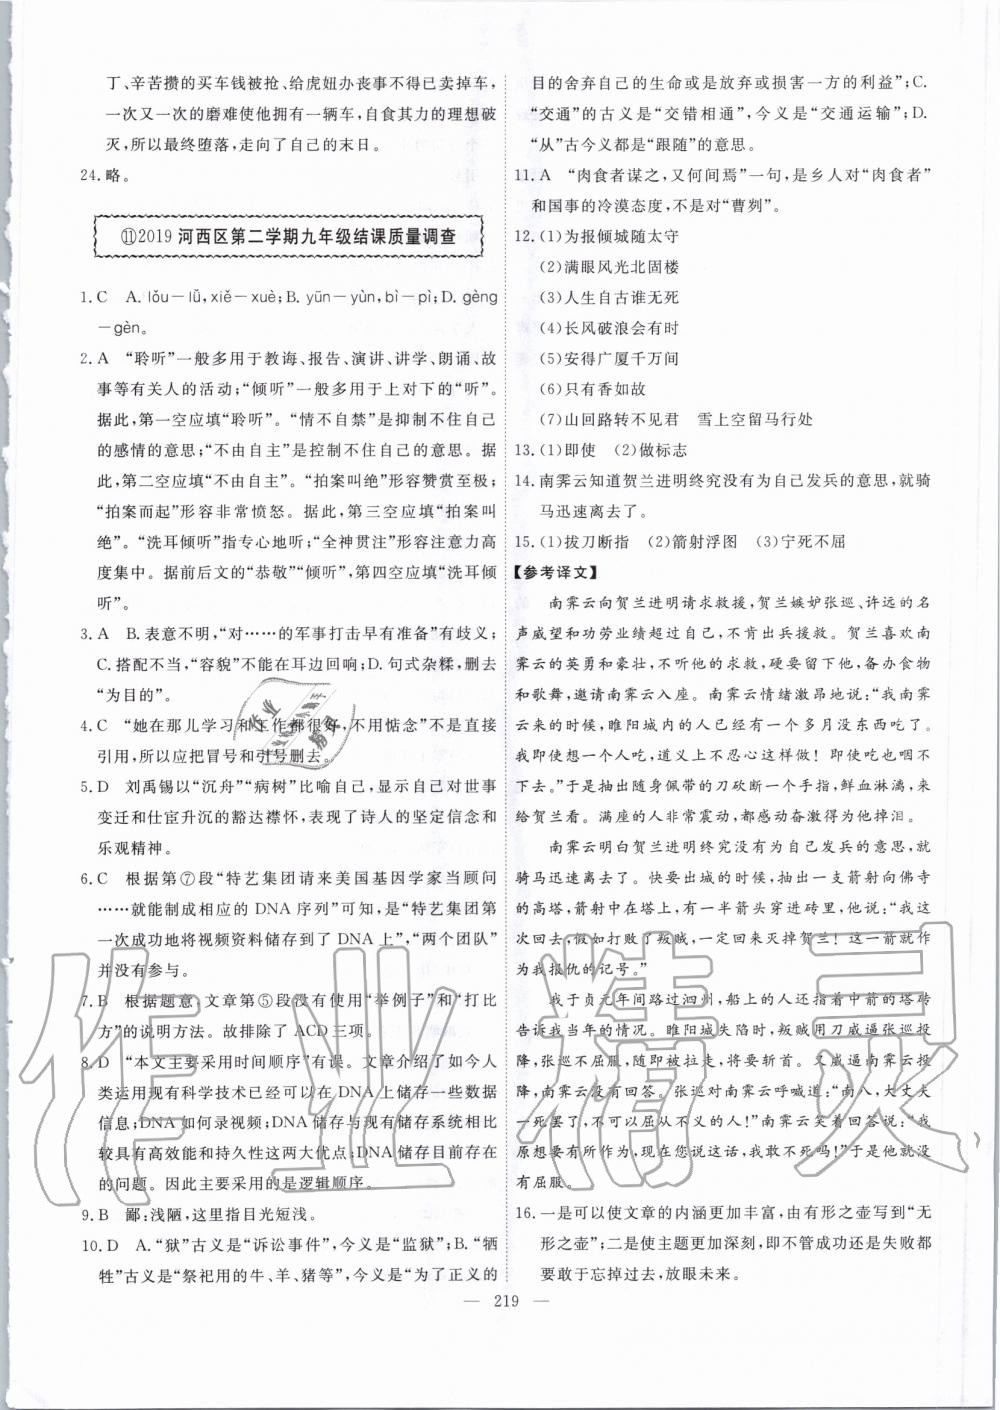 丁、辛苦攒的买车钱被抢、给虎妞办丧事不得已卖掉车,
一次又一次的磨难使他拥有一辆车,自食其力的理想破
灭,所以最终堕落,走向了自己的末日。
24.略。
⑪2019 河西区第二学期九年级结课质量调查
1.C A. lǒu—lǚ,xiě—xuè;B. yūn—yùn,bì—pì;D. gèng
—gèn。
2.A “聆听”一般多用于教诲、报告、演讲、讲学、朗诵、故
事等有关人的活动;“倾听”一般多用于上对下的“听”。
据此,第一空应填“聆听”。“情不自禁”是抑制不住自己
的感情的意思;“不由自主”是控制不住自己的意思。据
此,第二空应填“不由自主”。“拍案叫绝”形容赞赏至极;
“拍案而起”形容非常愤怒。据此,第三空应填“拍案叫
绝”。“洗耳倾听”指专心地听;“全神贯注”形容注意力高
度集中。据前后文的“恭敬”“倾听”,第四空应填“洗耳倾
听”。
3.A B.表意不明,“对……的军事打击早有准备”有歧义;
C.搭配不当,“容貌”不能在耳边回响;D.句式杂糅,删去
“为目的”。
4.C “她在那儿学习和工作都很好,不用惦念”不是直接
引用,所以应把冒号和引号删去。
5.D 刘禹锡以“沉舟”“病树”比喻自己,显示自己对世事
变迁和仕宦升沉的豁达襟怀,表现了诗人的坚定信念和
乐观精神。
6.C 根据第⑦段“特艺集团请来美国基因学家当顾问
……就能制成相应的 DNA 序列”可知,是“特艺集团第
一次成功地将视频资料储存到了 DNA 上”,“两个团队”
并没有参与。
7.B 根据题意,文章第⑤段没有使用“举例子”和“打比
方”的说明方法。故排除了 ACD三项。
8.D “本文主要采用时间顺序”有误。文章介绍了如今人
类运用现有科学技术已经可以在 DNA 上储存一些数据
信息;DNA 如何录视频;DNA 储存与现有储存系统相比
较具有高效能和持久性这两大优点;DNA 储存目前存在
的问题。因此主要采用的是逻辑顺序。
9.B 鄙:浅陋,这里指目光短浅。
10.D A.“狱”古义是“诉讼事件”,今义是“监狱”;B.“牺
牲”古义是“祭祀用的牛、羊、猪等”,今义是“为了正义的
目的舍弃自己的生命或是放弃或损害一方的利益”;C.
“交通”的古义是“交错相通”,今义是“交通运输”;D.
“从”古今义都是“跟随”的意思。
11.A “肉食者谋之,又何间焉”一句,是乡人对“肉食者”
和国事的冷漠态度,不是对“曹刿”。
12.(1)为报倾城随太守
(2)满眼风光北固楼
(3)人生自古谁无死
(4)长风破浪会有时
(5)安得广厦千万间
(6)只有香如故
(7)山回路转不见君 雪上空留马行处
13.(1)即使 (2)做标志
14.南霁云知道贺兰进明终究没有为自己发兵的意思,就骑
马迅速离去了。
15.(1)拔刀断指 (2)箭射浮图 (3)宁死不屈
【参考译文】
南霁云向贺兰进明请求救援,贺兰嫉妒张巡、许远的名
声威望和功劳业绩超过自己,不肯出兵援救。贺兰喜欢南
霁云的英勇和豪壮,不听他的求救,硬要留下他,备办食物
和歌舞,邀请南霁云入座。南霁云情绪激昂地说:“我南霁
云来的时候,睢阳城内的人已经有一个多月没东西吃了。
我即使想一个人吃,道义上不忍心这样做!即使吃也咽不
下去。”于是抽出随身佩带的刀砍断一个手指,鲜血淋漓,来
给贺兰看。满座的人非常震动,都感动奋激得为他掉泪。
南霁云明白贺兰进明终究没有为自己发兵的意思,就
骑马迅速离去了。快要出城的时候,抽出一支箭射向佛寺
的高塔,箭射中在塔上,有一半箭头穿进砖里,他说:“我这
次回去,假如打败了叛贼,一定回来灭掉贺兰!这一箭就作
为我报仇的记号。”
我于贞元年间路过泗州,船上的人还指着中箭的塔砖
告诉我当年的情况。睢阳城失陷时,叛贼用刀威逼张巡投
降,张巡不屈服,随即被拉走,将要斩首。又威逼南霁云投
降,南霁云没有回答。张巡对南霁云呼喊道:“南八,大丈夫
一死罢了,不可以屈从不义的人!”南霁云笑着回答说:“我
原想要有所作为,现在您说这话,我敢不死吗!”就没
有屈服。
16.一是可以使文章的内涵更加丰富,由有形之壶写到“无
形之壶”;二是使主题更加深刻,即不管成功还是失败都
要敢于忘掉过去,放眼未来。
— 219 —
作业精灵